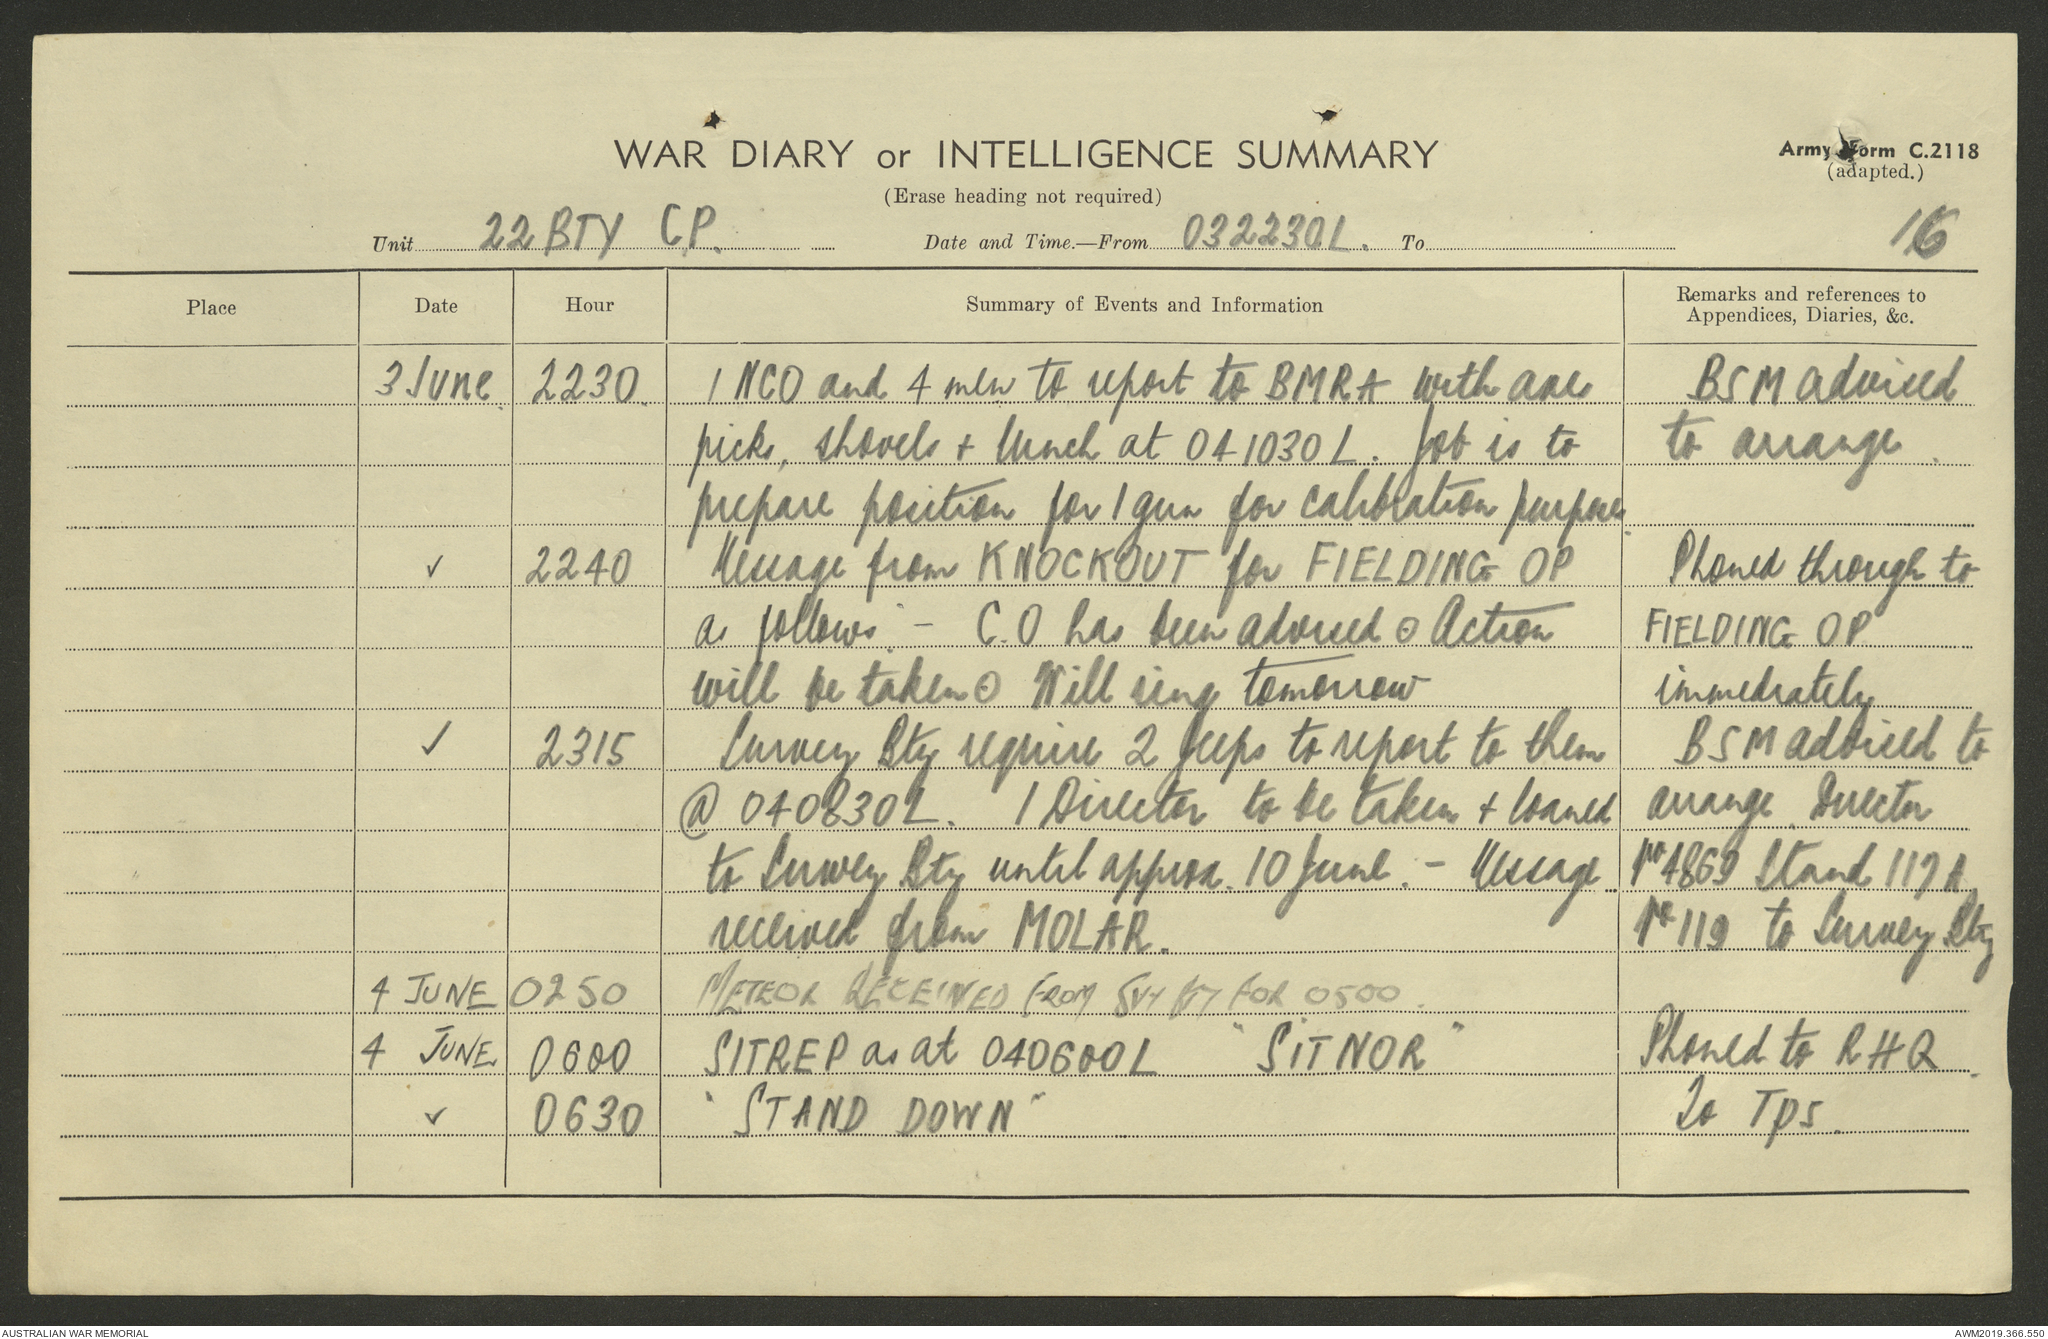 WAR DIARY or INTELLIGENCE SUMMARY
Army Form C.2118
(adapted.)
(Erase heading not required)
16
Unit 22 BTY CP. Date and Time.—From 032230L. To
Place Date Hour Summary of Events and Information Remarks and references to Appendices, Diaries, &c.
3 June 2230 1 NCO and 4 men to report to BMRA with axes BSM advised
picks, shovels + lunch at 041030L. Job is to to arrange.
prepare position for 1 gun for calibration purposes.
✓ 2240 Message from KNOCKOUT for FIELDING OP Phoned through to
as follows:- C.O has been advised ⊙ Action FIELDING OP
will be taken ⊙ Will ring tomorrow immediately
✓ 2315 Survey Bty require 2 Jeeps to report to them BSM advised to
@ 040830L. 1 Director to be taken + loaned arrange. Director
to Survey Bty until approx. 10 June. - Message No 4869 Stand 119A
received from MOLAR. No 119 to Survey Bty
4 JUNE 0250 METEOR RECEIVED FROM SVY BTY FOR 0500.
4 JUNE 0600 SITREP as at 040600L "SITNOR" Phoned to RHQ.
✓ 0630 "STAND DOWN" To Tps.
AUSTRALIAN WAR MEMORIAL
AWM2019.366.550